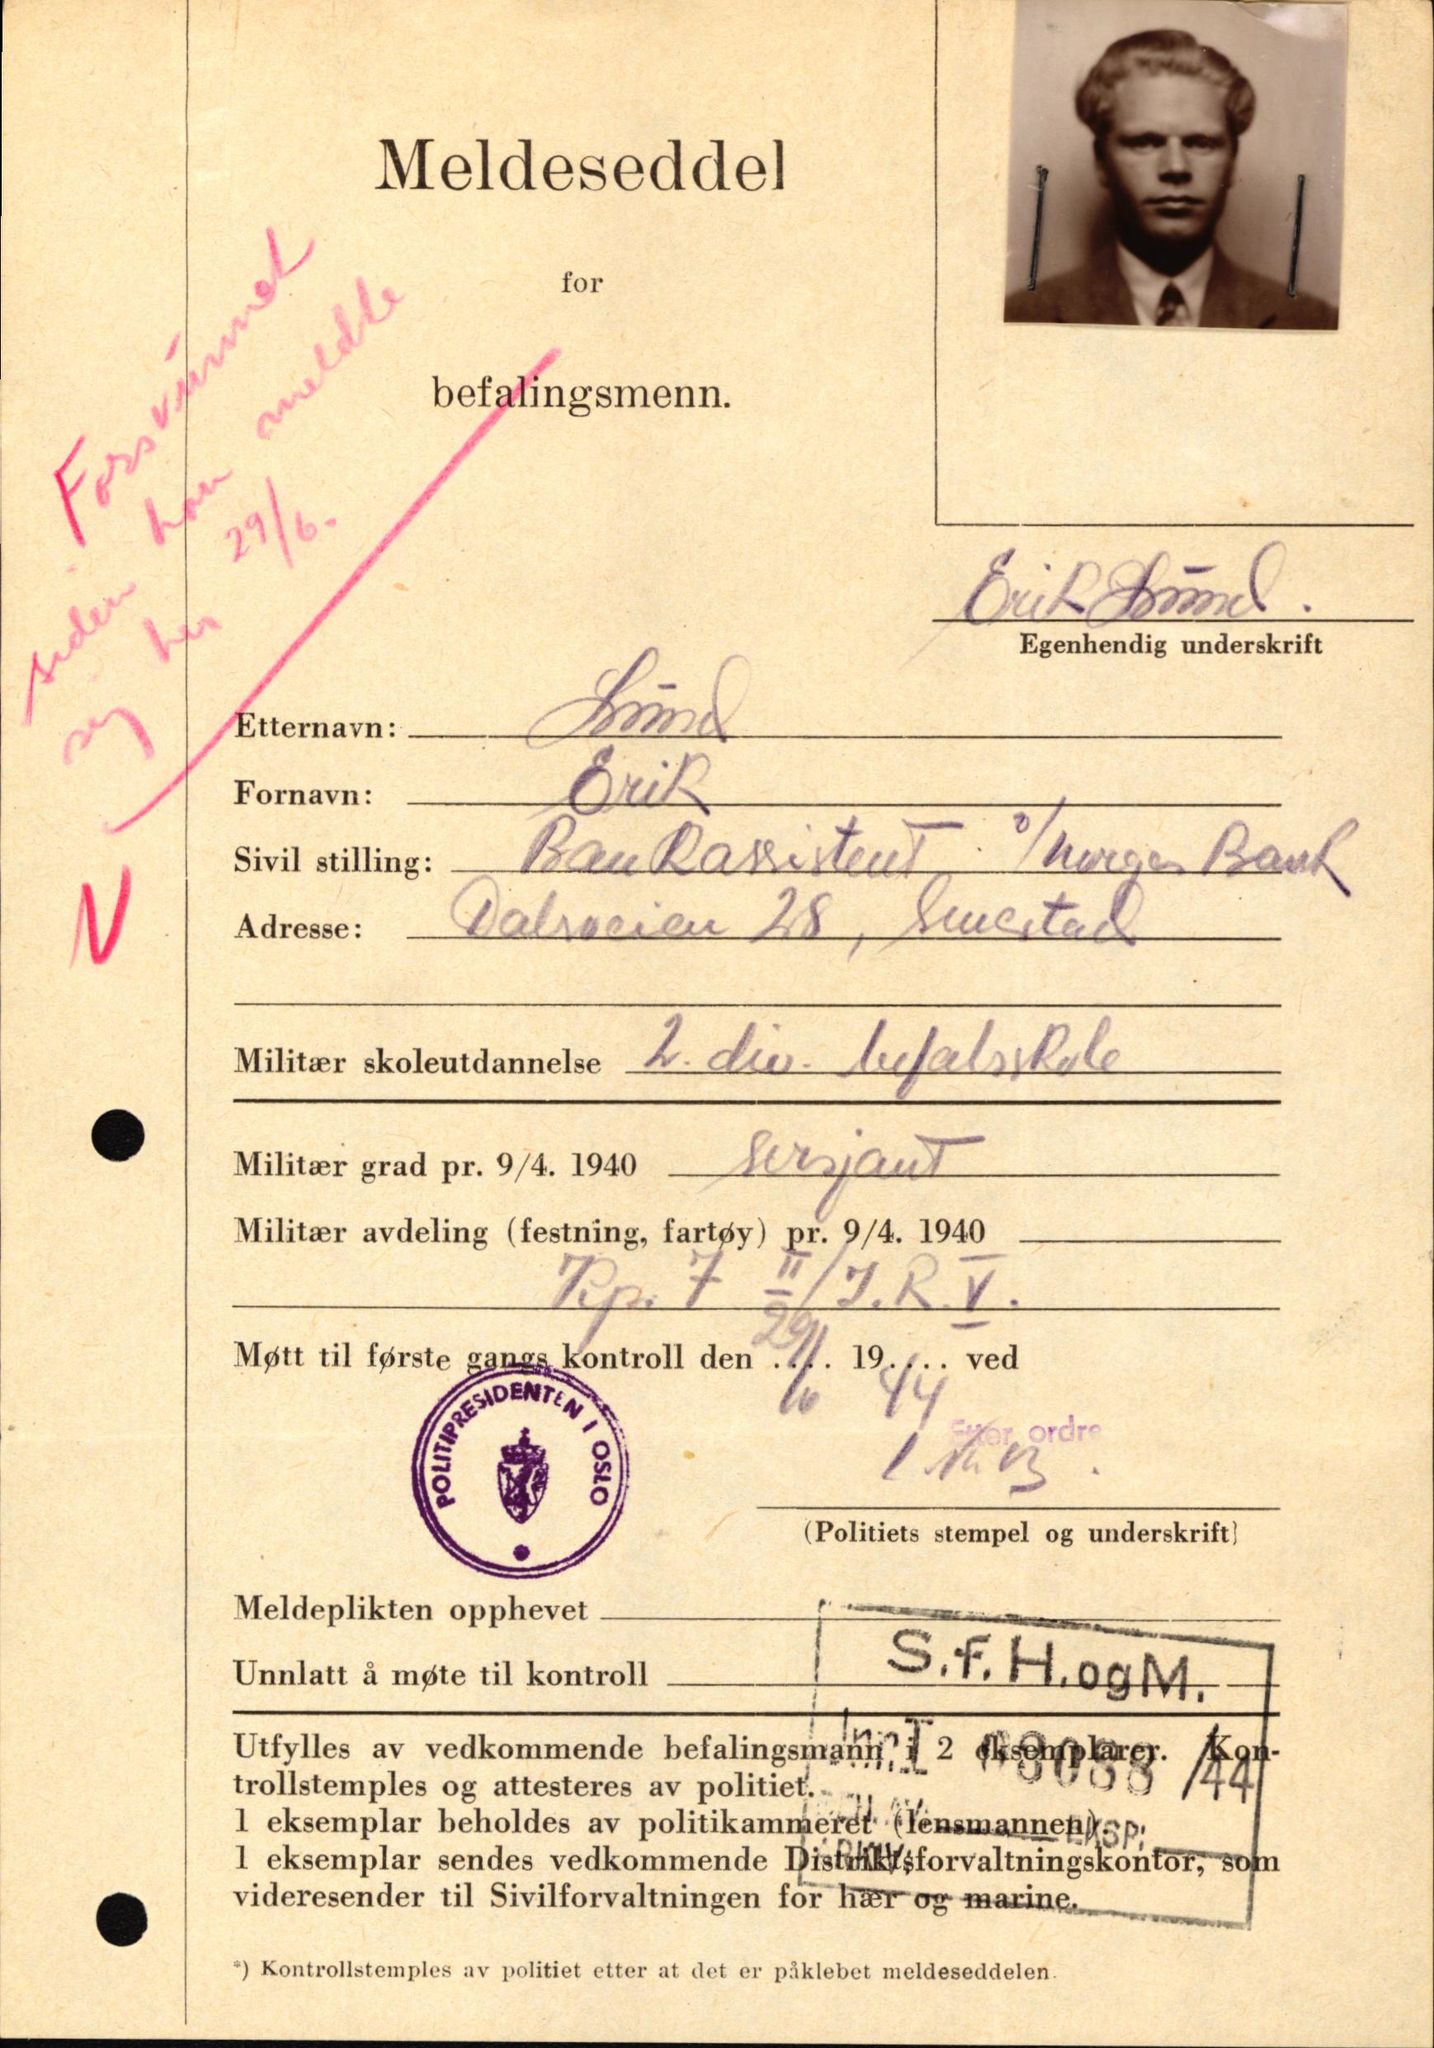 Meldeseddel
for
befalingsmenn.
Forsvunnet
siden han meldte
seg her 29/6.
V
Erik Lund.
Egenhendig underskrift
Etternavn: Lund
Fornavn: Erik
Sivil stilling: Bankassistent i/ Norges Bank
Adresse: Dalsveien 28, Smestad
Militær skoleutdannelse 2. div. befalsskole
Militær grad pr. 9/4. 1940 Sersjant
Militær avdeling (festning, fartøy) pr. 9/4. 1940
Kp. 7 II/I.R. V.
Møtt til første gangs kontroll den 29/6 1944 ved
POLITIPRESIDENTEN I OSLO
Etter ordre
(Politiets stempel og underskrift)
Meldeplikten opphevet
Unnlatt å møte til kontroll
S.f.H.ogM.
Utfylles av vedkommende befalingsmann i 2 eksemplarer. Kon-
trollstemples og attesteres av politiet.
1 eksemplar beholdes av politikammeret (lensmannen).
1 eksemplar sendes vedkommende Distriktsforvaltningskontor, som
videresender til Sivilforvaltningen for hær og marine.
*) Kontrollstemples av politiet etter at det er påklebet meldeseddelen.